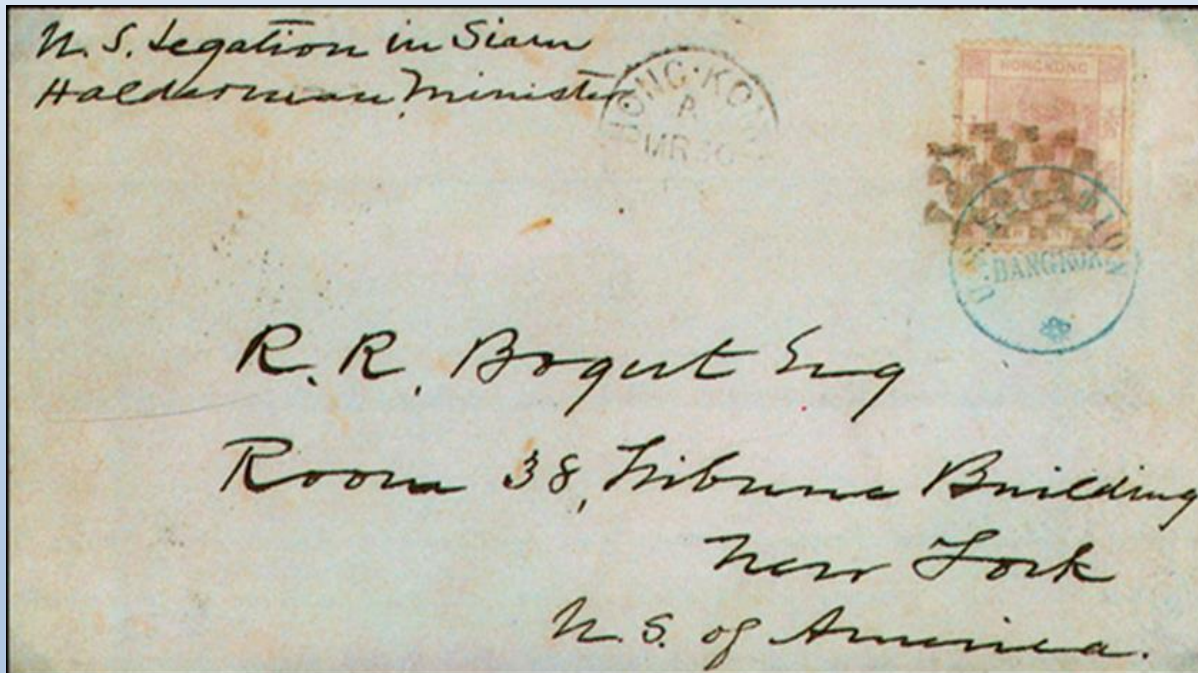 U.S. Legation in Siam
Halderman, Minister
HONG-KONG
MR
HONGKONG
BANGKOK
R. R. Bogert Esq
Room 38, Tribune Building
New York
U.S. of America.